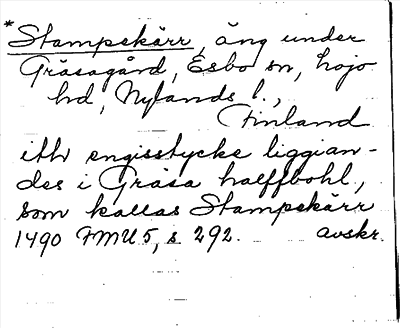 * Stampskärr, äng under
Gräsagård, Esbo sn, hojo
hd, Nylands l.,
Finland
itth engisstycke liggian-
des i Gräsa halffbohl,
som kallas Stampskärr
1490 FMU 5, s. 292. avskr.